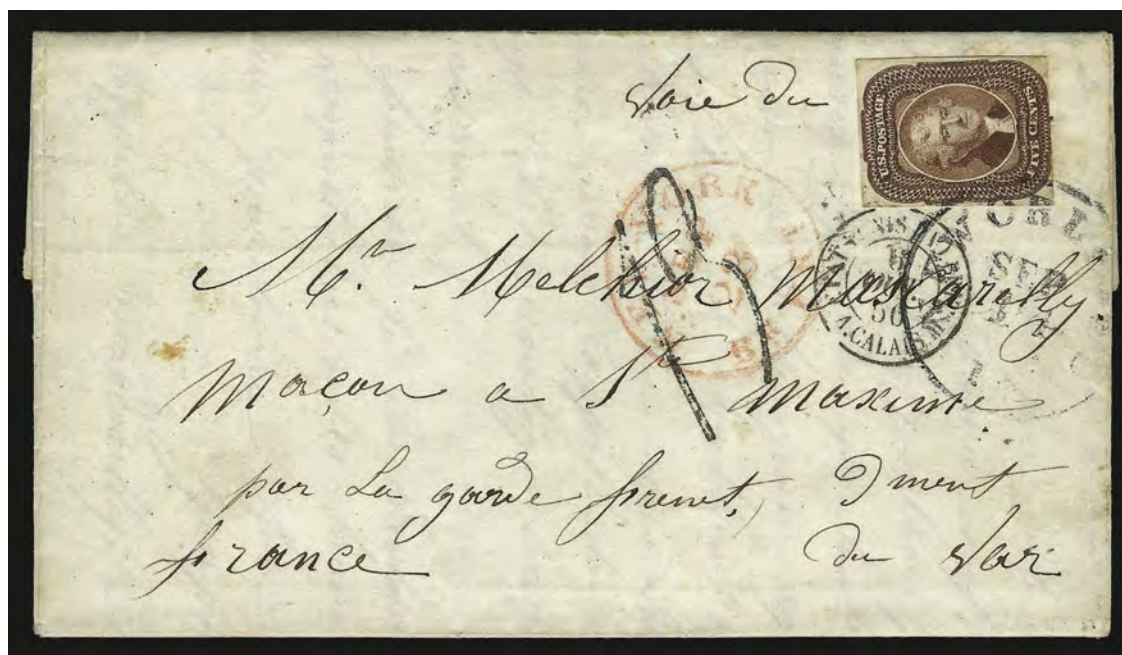 Voie du
U.S. POSTAGE
FIVE CENTS
Mr Melchior Mascarelly
Maçon a St Maxime
par La garde frenet, Dment
france du Var
SEP
CALAIS